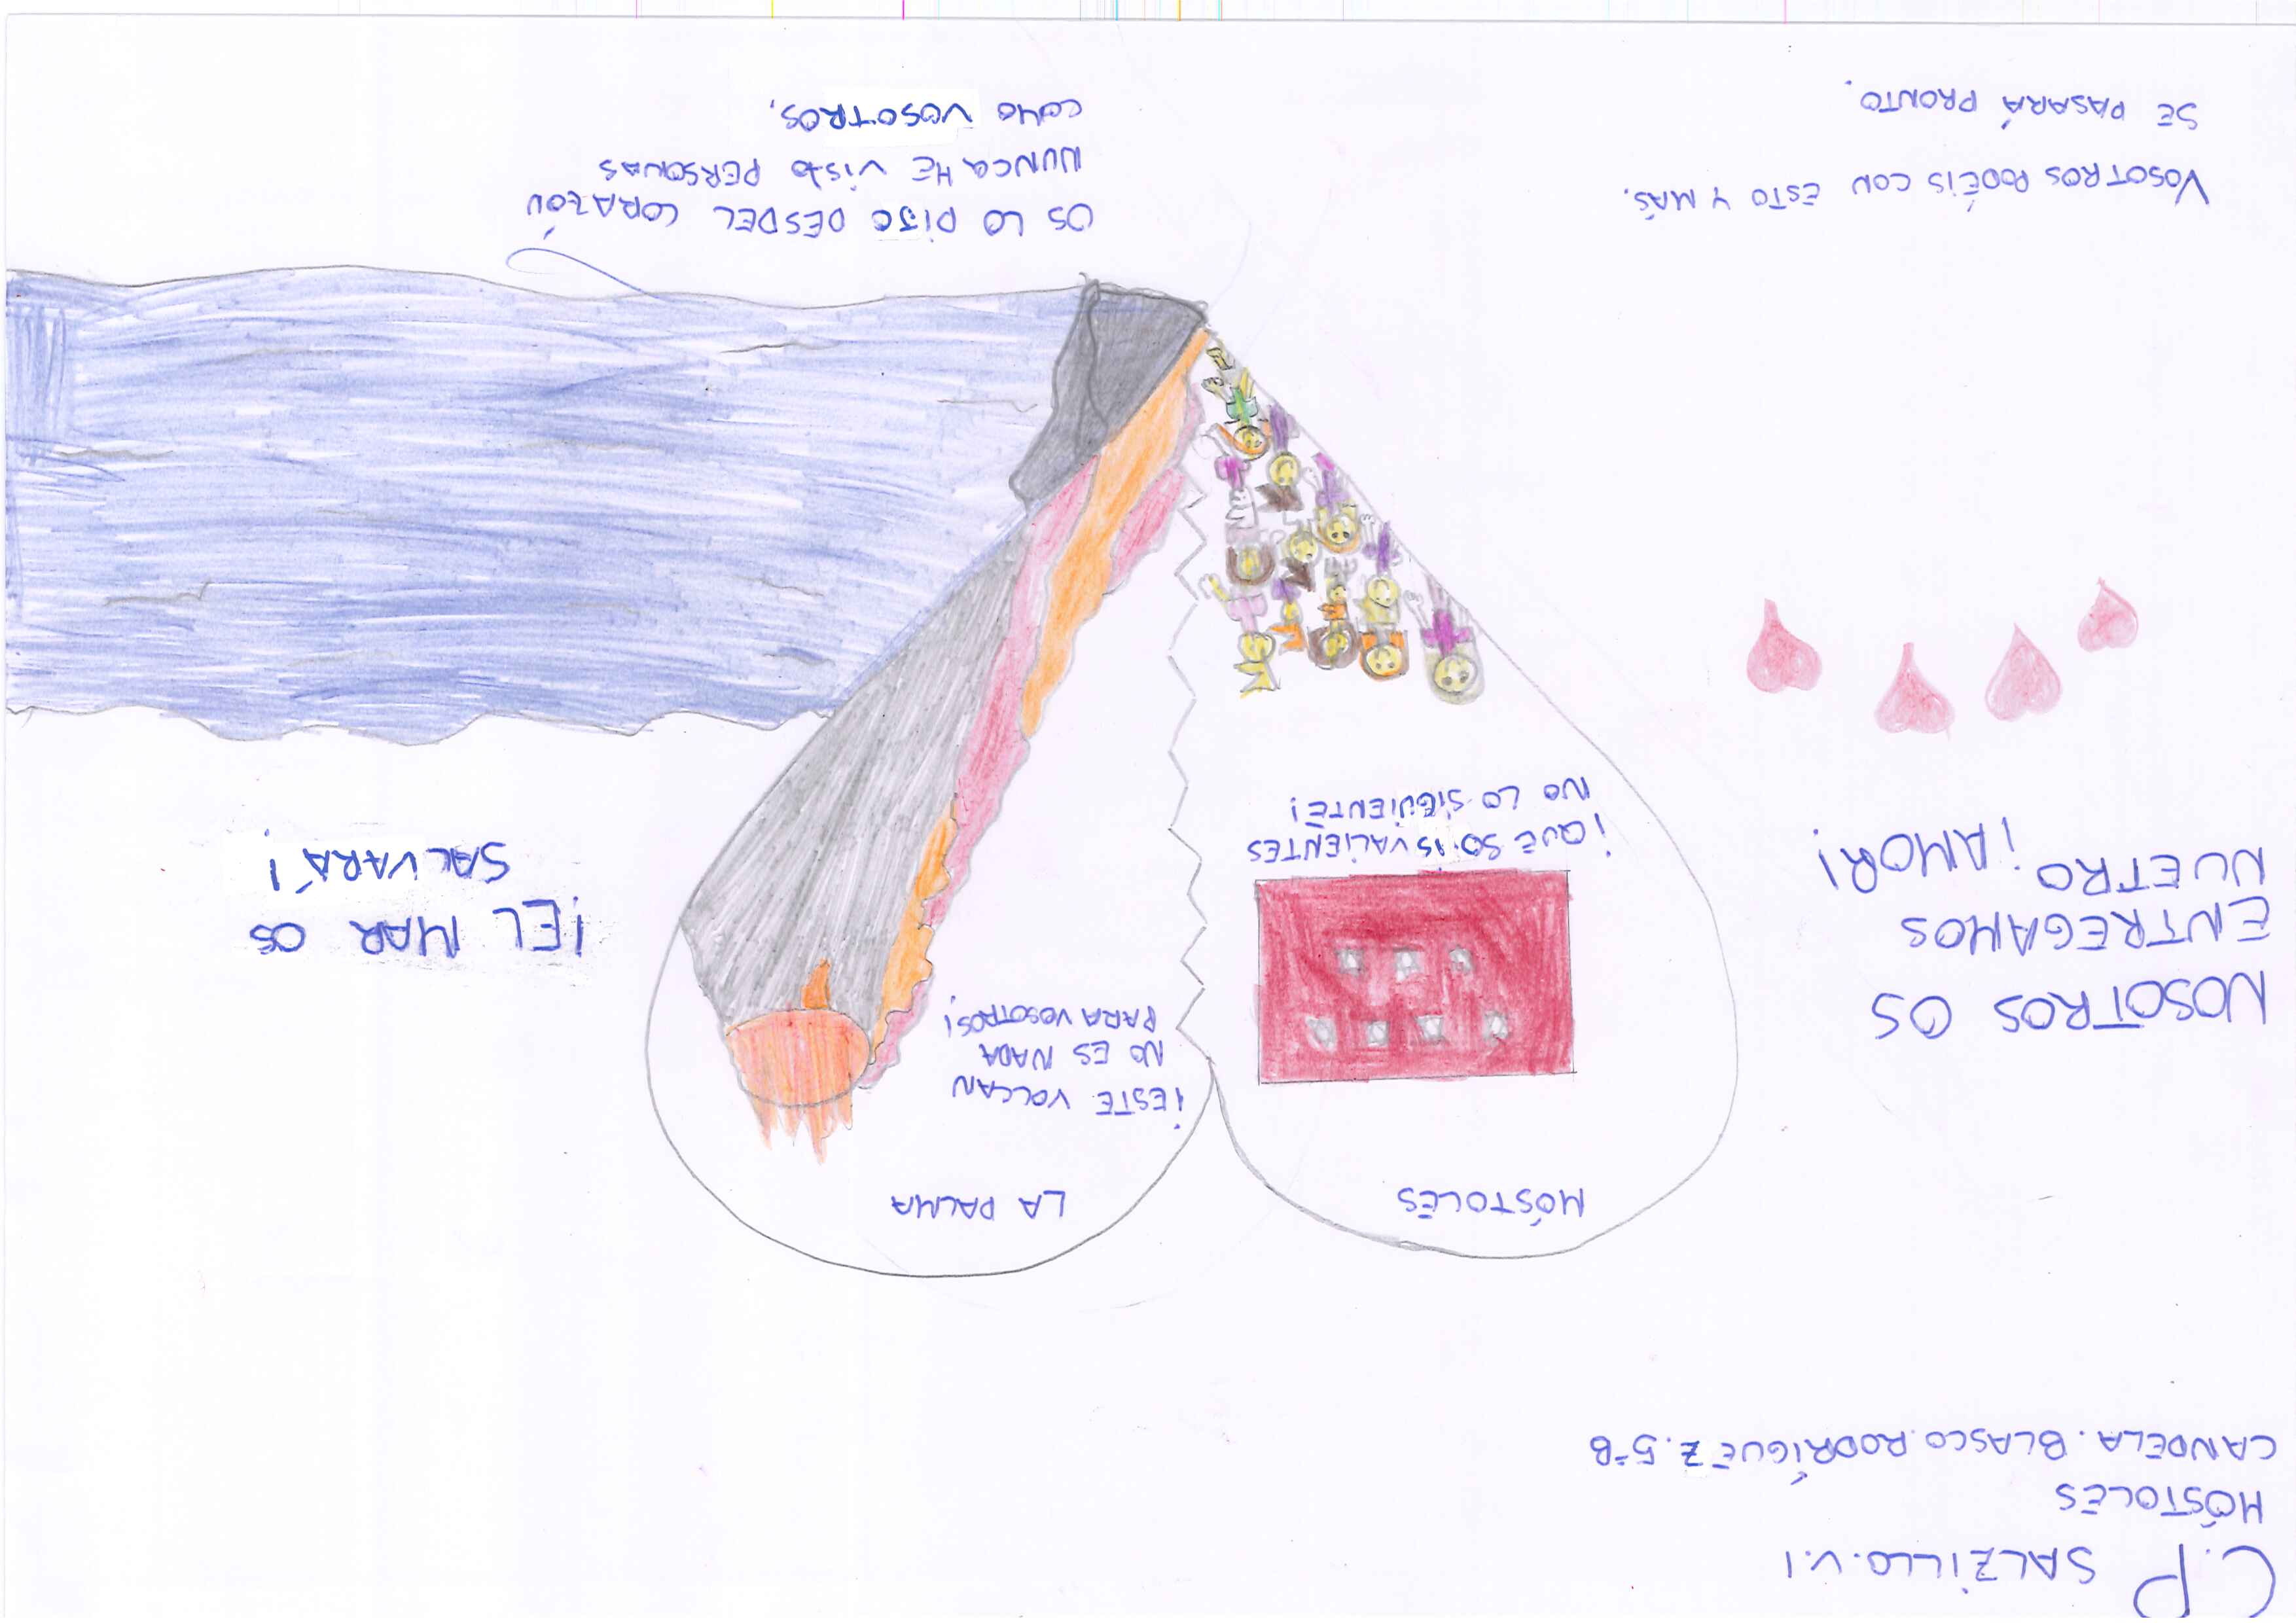 C.P SALZILLO.V.I
MÓSTOLES
CANDELA.BLASCO.RODRÍGUEZ.5ºB
MÓSTOLES
LA PALMA
¡ESTE VOLCAN
NO ES NADA
PARA VOSOTROS!
NOSOTROS OS
ENTREGAMOS
NUETRO ¡AMOR!
¡EL MAR OS
SALVARÁ!
¡QUE SOIS VALIENTES
NO LO SIGUIENTE!
VOSOTROS PODÉIS CON ESTO Y MÁS.
SE PASARÁ PRONTO.
OS LO DIJO DESDEL CORAZÓN
NUNCA HE VISTO PERSONAS
COMO VOSOTROS.